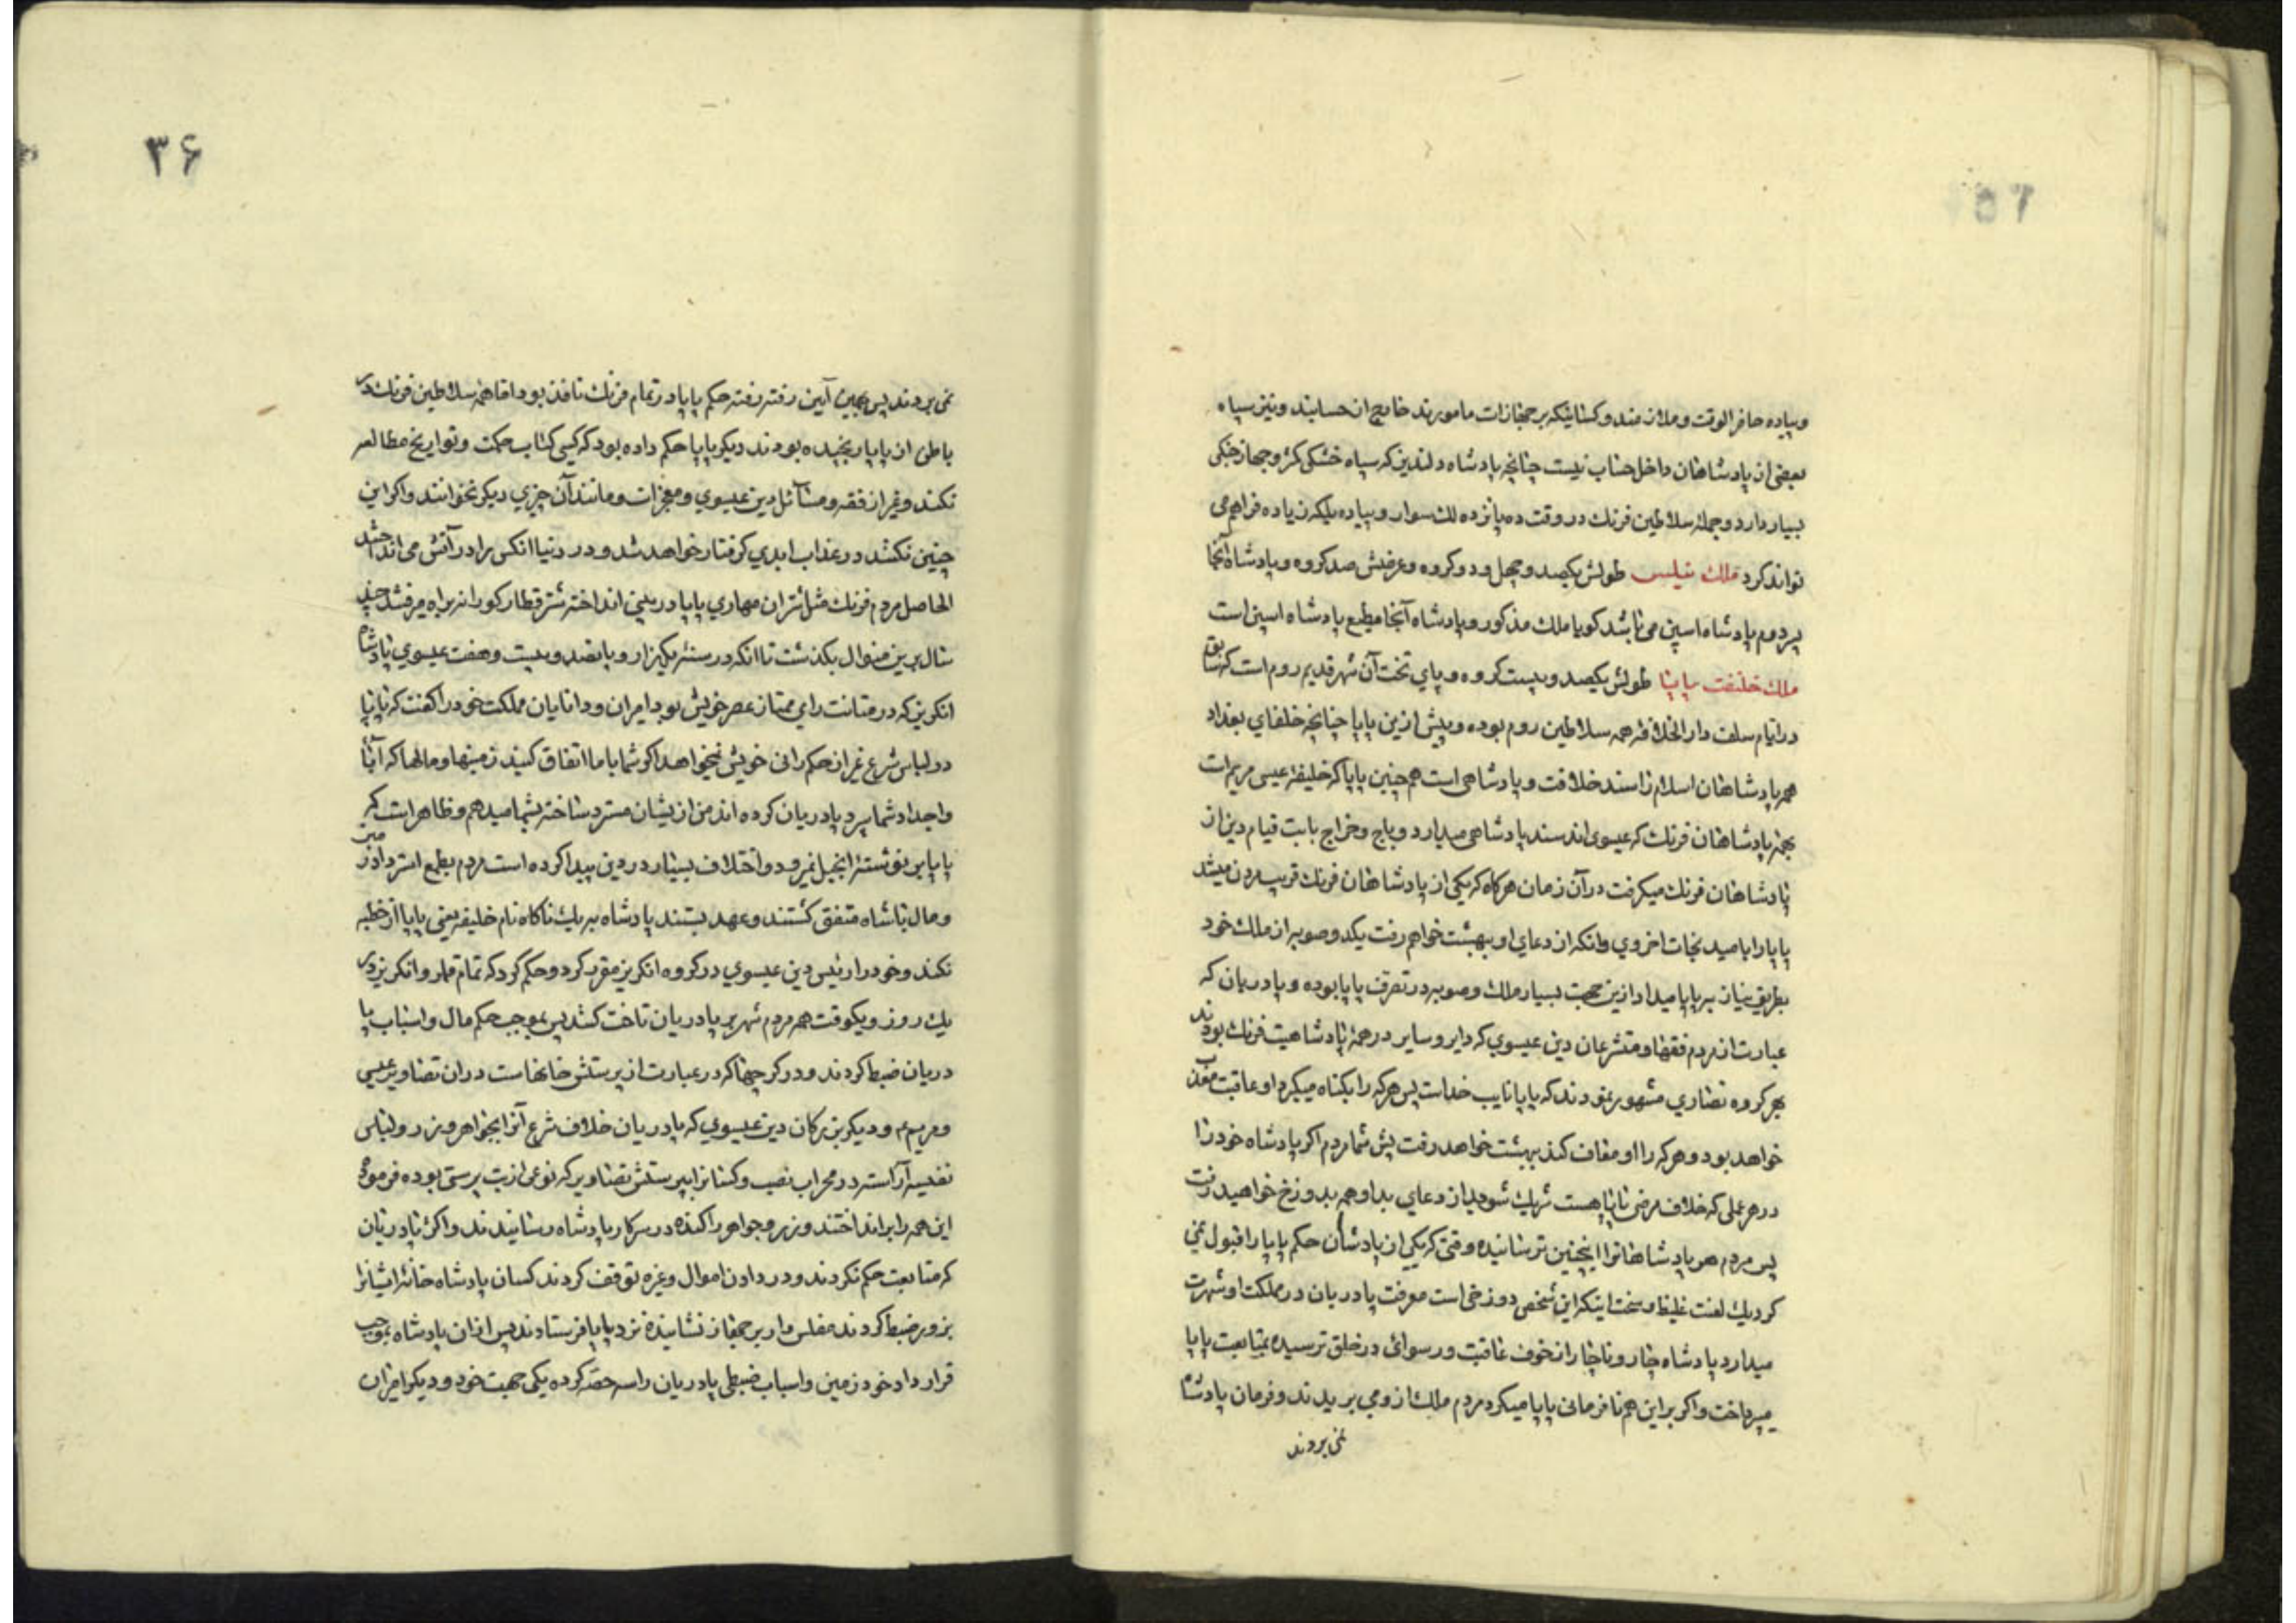 وپیاده حاضر الوقت وملازمند وکسانیکه بر جهازات مامورند خارج از حسابند ونیز سپاه
بعضی از پادشاهان داخل حساب نیست چنانچه پادشاه ولندیز که سپاه خشکی کمتر وجهاز جنکی
بسیار دارد وجمله سلاطین فرنك در وقت ده پانزده لك سوار وپیاده بلکه زیاده فراهم می
تواند کرد ملك نیپلس طولش یکصد وچهل ودو کروه وعرضش صد کروه وپادشاه آنجا
پسر دوم پادشاه اسپین می باشد کویا ملك مذکور وپادشاه آنجا مطیع پادشاه اسپین است
ملك خلیفت پاپا طولش یکصد وبیست کروه وپای تخت آن شهر قدیم روم است که سابق
در ایام سلف دار الخلافه همه سلاطین روم بوده وپیش ازین پاپا چنانچه خلفای بغداد
همه پادشاهان اسلام را سند خلافت وپادشاهی است همچنین پاپا که خلیفه عیسی مریم است
بجمله پادشاهان فرنك که عیسوی اند سند پادشاهی میدارد وباج وخراج بابت قیام دین از
پادشاهان فرنك میکرفت در آن زمان هرکاه که یکی از پادشاهان فرنك قریب مردن میشد
پاپا را بامید نجات اخروی وانکه از دعای او ببهشت خواهم رفت یکدو صوبه از ملك خود
بطریق نیاز به پاپا میداد ازین جهت بسیار ملك وصوبه در تصرف پاپا بوده وپادریان که
عبارت از مردم فقها ومتشرعان دین عیسوی که دایر وسایر در همه پادشاهیت فرنك بودند
بهر کروه نصاری مشهور نمودند که پاپا نایب خداست پس هر که را بکناه میکیرد او عاقبت معذب
خواهد بود وهر که را او معاف کند ببهشت خواهد رفت پس شما مردم اکر پادشاه خود را
در هر عملی که خلاف مرضی پاپا هست شریك شوید از دعای بد او همه بدوزخ خواهید رفت
پس مردم هر پادشاهانرا اینچنین ترسانیده وقتی که یکی از پادشاهان حکم پاپا را قبول نمی
کرد یك لعنت غلیظ وسخت اینکه این شخص دوزخی است معرفت پادریان در مملکت او شهرت
میدارد پادشاه چار وناچار از خوف عاقبت ورسوائی در خلق ترسیده بمتابعت پاپا
میپرداخت واکر براین هم نافرمانی پاپا میکرد مردم ملك از ومی بریدند وفرمان پادشاه
نمی بردند
۳۶
نمی بردند پس بهمین آیین رفته رفته حکم پاپا در تمام فرنك نافذ بود اما همه سلاطین فرنك در
باطن از پاپا رنجیده بودند دیکر پاپا حکم داده بود که کسی کتاب حکمت وتواریخ مطالعه
نکند وغیر از فقه ومسائل دین عیسوی ومعجزات ومانند آن چیزی دیکر نخوانند واکر این
چنین نکنند در عذاب ابدی کرفتار خواهد شد ودر دنیا انکس را در آتش می انداختند
الحاصل مردم فرنك مثل شتران مهاری پاپا در بینی انداخته شتر قطار کورانه براه میرفتند چند
سال برین منوال بکذشت تا انکه در سنه یکهزار وپانصد وبیست وهفت عیسوی پادشاه
انکریز که در متانت رای ممتاز عصر خویش بود امیران ودانایان مملکت خود را کفت که پاپا
در لباس شرع غیر از حکم رانی خویش نمیخواهد اکر شما باما اتفاق کنید زمینها ومالها که آبا
واجداد شما سپرد پادریان کرده اند من از یشان مسترد ساخته بشما میدهم وظاهر است که
پاپا بر نوشته انجیل نمیرود واختلاف بسیار در دین پیدا کرده است مردم بطمع استرداد زمین
ومال باشاه متفق کشتند وعهد بستند پادشاه به یك ناکاه نام خلیفه یعنی پاپا از خطبه
نکند وخود را رئیس دین عیسوی در کروه انکریز مقرر کرد وحکم کرد که تمام قلمرو انکریز در
یك روز ویکوقت همه مردم شهر بر پادریان تاخت کنند پس بموجب حکم مال واسباب پا
دریان ضبط کردند ودر کرجها که در عبارت از پرستش خانهاست دران تصاویر عیسی
ومریم ء ودیکر بزرکان دین عیسوی که پادریان خلاف شرع آنرا بجواهر وزر ولباس
نفیسه آراسته در محراب نصب وکسانرا پرستش تصاویر که نوعی از بت پرستی بوده فرموده
این همه را بر انداختند وزر وجواهر را کنده در سرکار پادشاه رسانیدند واکثر پادریان
که متابعت حکم نکردند ودر دادن اموال وغیره توقف کردند کسان پادشاه خانه ایشانرا
بزور ضبط کردند مفلس وار بر جهاز نشانیده نزد پاپا فرستادند پس ازان پادشاه بموجب
قرار داد خود زمین واسباب ضبطی پادریان را سه حصه کرده یکی جهت خود ودیکر امیران